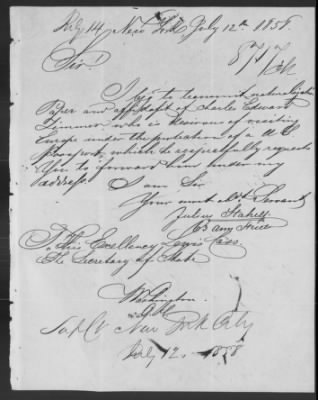 July 14 New York July 12th 1858.
8717
Sir.
I beg to transmit naturalization
Paper and affidavit of Charles Edward
Zimmer who is desirous of visiting
Europe under the protection of a U.S.
passport, which he respectfully requests
You to forward him under my
address
I am Sir
Your most obt Servant
Julius Stahel
63 Ann Street
To his Excellency Lewis Cass.
The Secretary of State
Washington
New York City
July 12. 1858